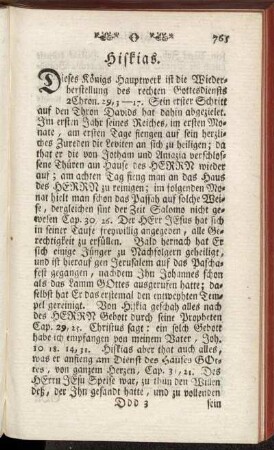 765
Hiskias.
Dieses Königs Hauptwerk ist die Wieder-
herstellung des rechten Gottesdiensts
2Chron. 29, 3—17. Sein erster Schritt
auf den Thron Davids hat dahin abgezielet.
Im ersten Jahr seines Reiches, im ersten Mo-
nate, am ersten Tage fiengen auf sein herzli-
ches Zureden die Leviten an sich zu heiligen; da
that er die von Jotham und Amazia verschlos-
sene Thüren am Hause des HERRN wieder
auf; am achten Tag fieng man an das Haus
des HERRN zu reinigen; im folgenden Mo-
nat hielt man schon das Passah auf solche Wei-
se, dergleichen sind der Zeit Salomo nicht ge-
wesen Cap. 30, 26. Der HErr JEsus hat sich
in seiner Taufe freywillig angegeben, alle Ge-
rechtigkeit zu erfüllen. Bald hernach hat Er
sich einige Jünger zu Nachfolgern geheiliget,
und ist hierauf gen Jerusalem auf das Pascha-
fest gegangen, nachdem Ihn Johannes schon
als das Lamm GOttes ausgerufen hatte; da-
selbst hat Er das erstemal den entweyhten Tem-
pel gereinigt. Von Hiskia geschah alles nach
des HERRN Gebott durch seine Propheten
Cap. 29, 25. Christus sagt: ein solch Gebott
habe ich empfangen von meinem Vater, Joh.
10, 18. 14, 31. Hiskias aber that auch alles,
was er anfieng am Dienst des Hauses GOt-
tes, von ganzem Herzen, Cap. 31, 21. Des
HErrn JEsu Speise war, zu thun den Willen
deß, der Ihn gesandt hatte, und zu vollenden
Ddd 3 sein